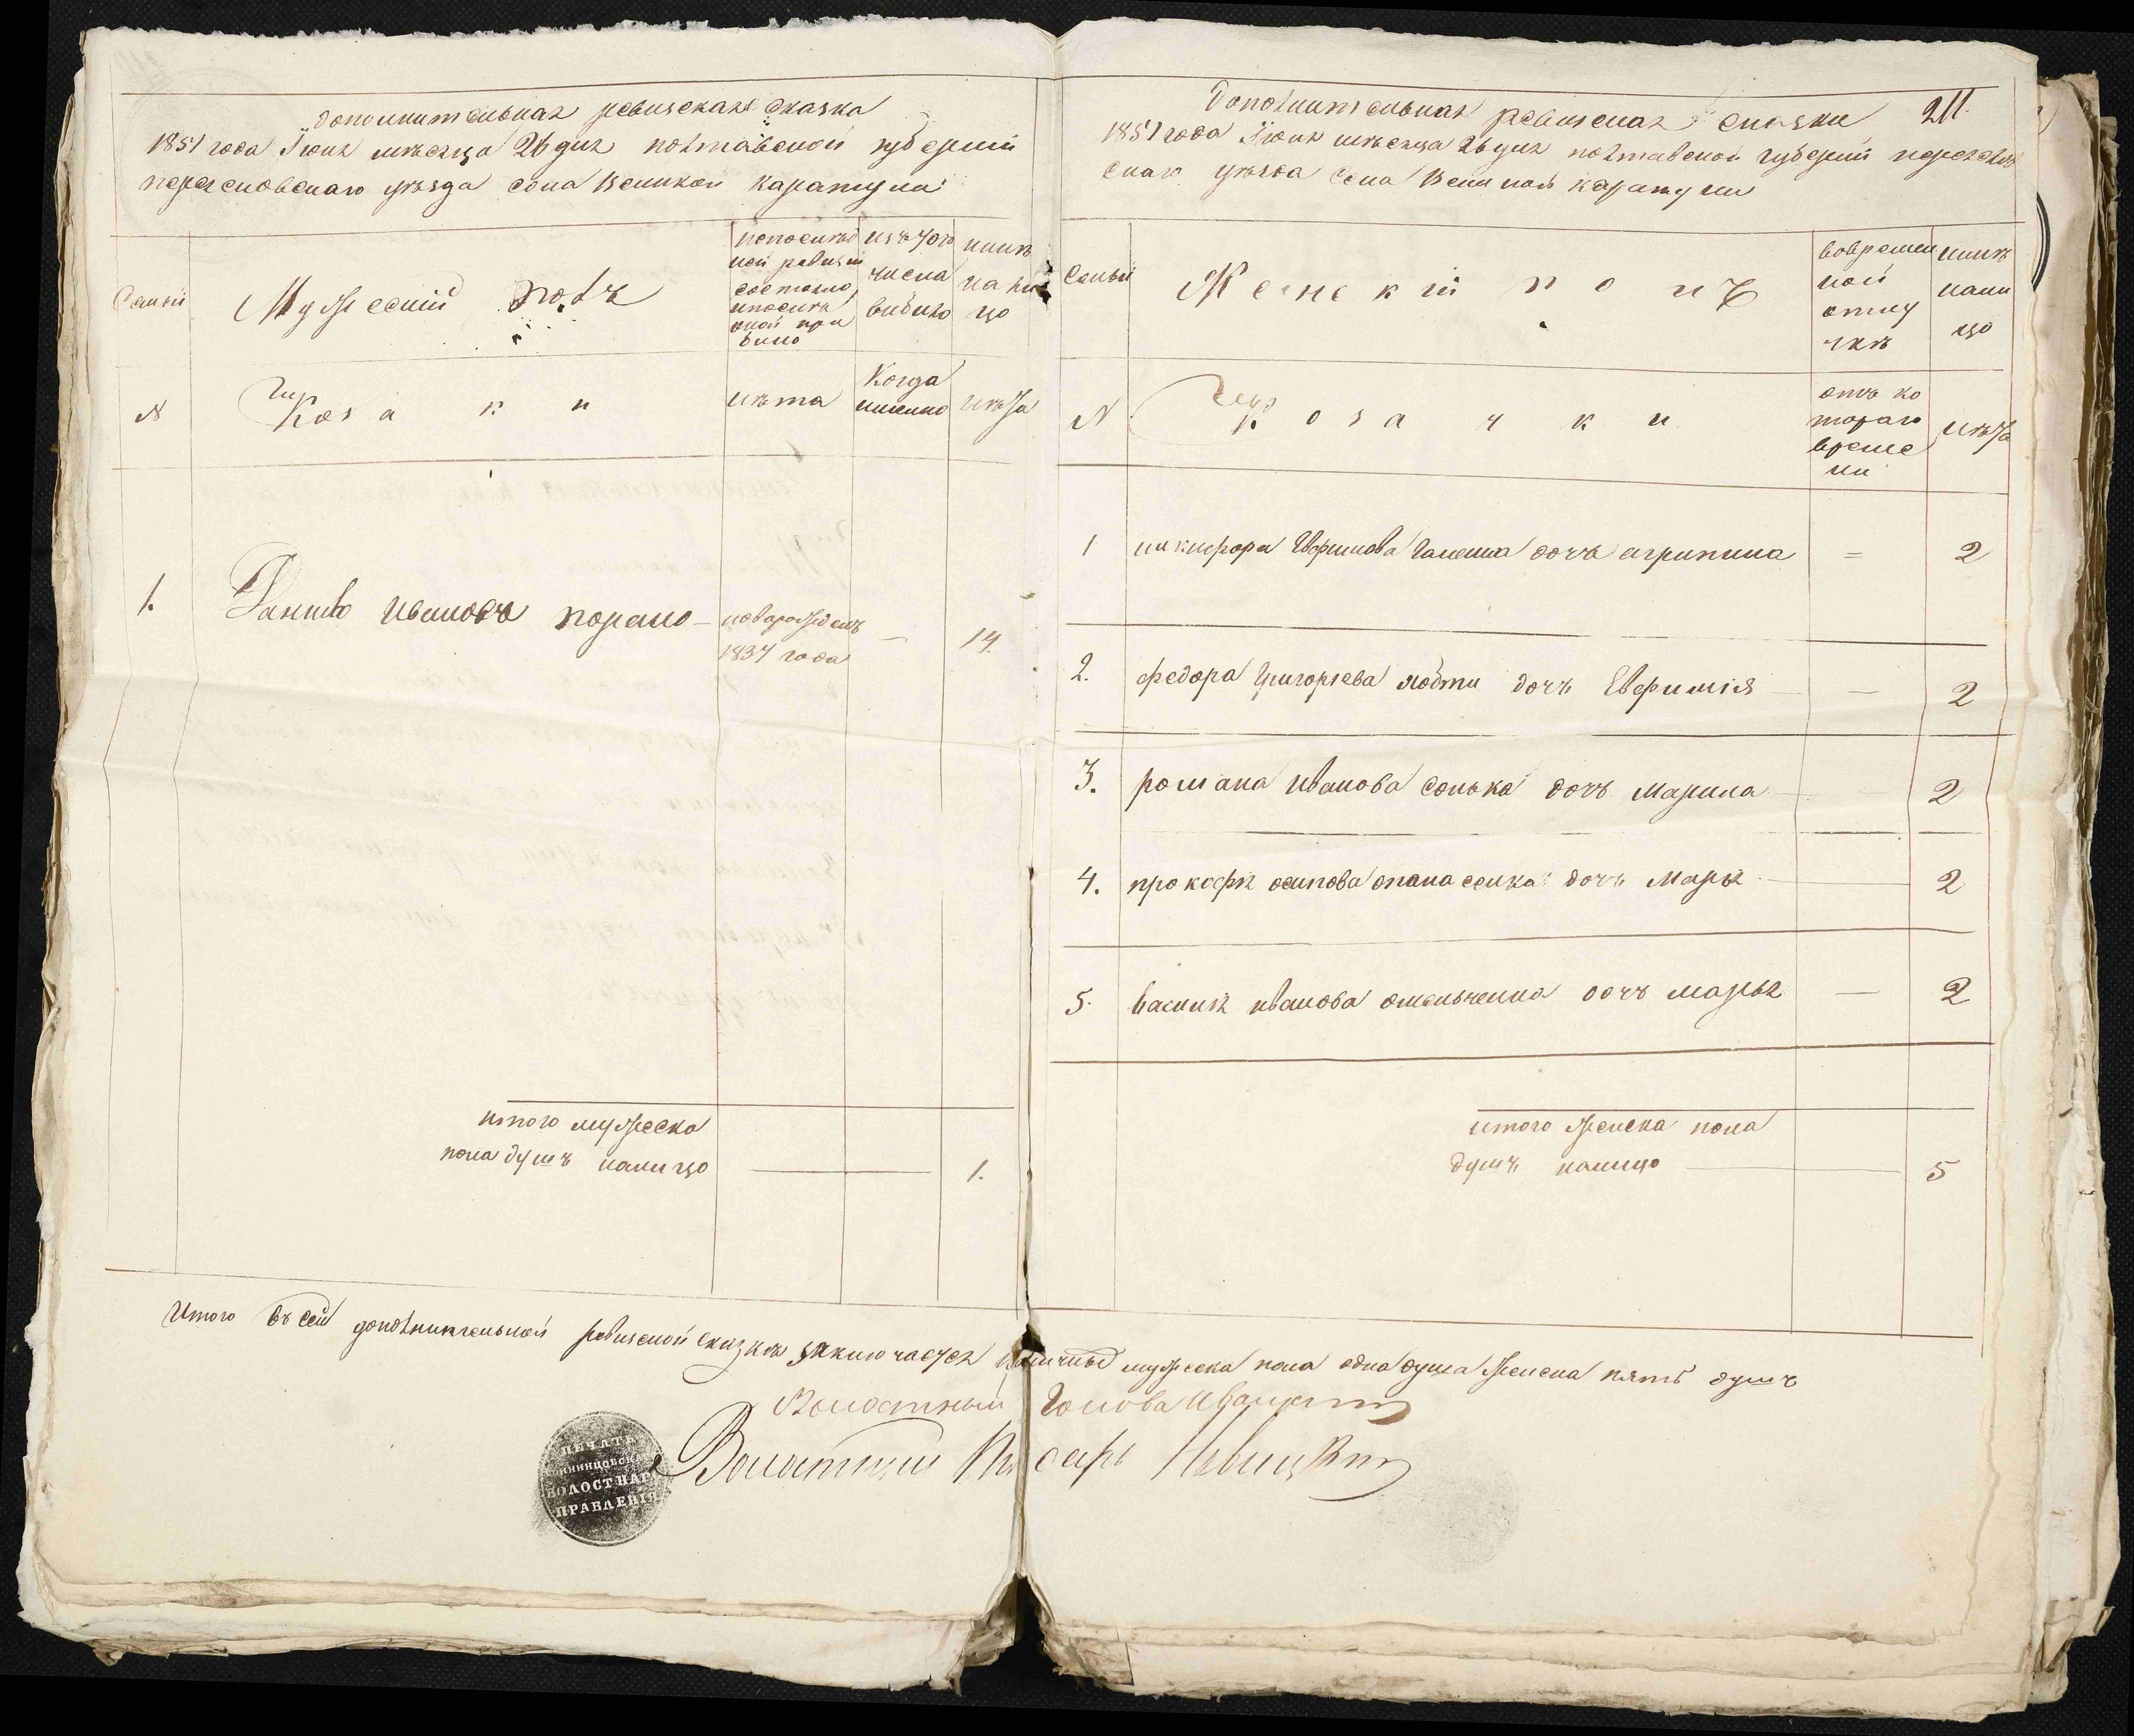 Дополнительная ревизская сказка
1851 года Іюня мѣсяца 26 дня полтавской губерніи
переясловскаго уѣзда села Великой каратули
Семьи
Мужескій полъ
попослѣд
ней ревизіи
состояло
ипослѣ
оной при
было
изъ того
числа
вибило
нинѣ
на ли
цо
№
Козаки
лѣта
Когда
именно
лѣта
1.
Данило Ивановъ порано
новорожденъ
1837 года
—
14.
итого мужеска
пола душъ налицо
1.
Дополнительная ревизская сказка
211.
1851 года Іюня мѣсяца 26 дня полтавской губерніи переяслов
скаго уѣзда села Великой каратули
Семьи
Женскій полъ
вовремен
ной
отлу
чкѣ
нинѣ
нали
цо
№
Козачки
отъ ко
тораго
време
ни
лѣта
1 никифора Евфимова дочь агрипина = 2
2. федора Григорьева лобти дочъ Евфимія — 2
3. романа иванова сонька дочъ Марина 2
4. прокофія осипова опанасенка дочъ Марья 2
5. василія иванова омельченка дочъ марья — 2
итого женска пола
душъ налицо
5
Итого въ сей дополнительной ревизской сказкѣ заключается наличныхъ мужеска пола одна душа женска пять душъ
Волостный Голова
Волостный Писарь
ПЕЧАТЬ
ВОЛОСТНАГО
ПРАВЛЕНІЯ